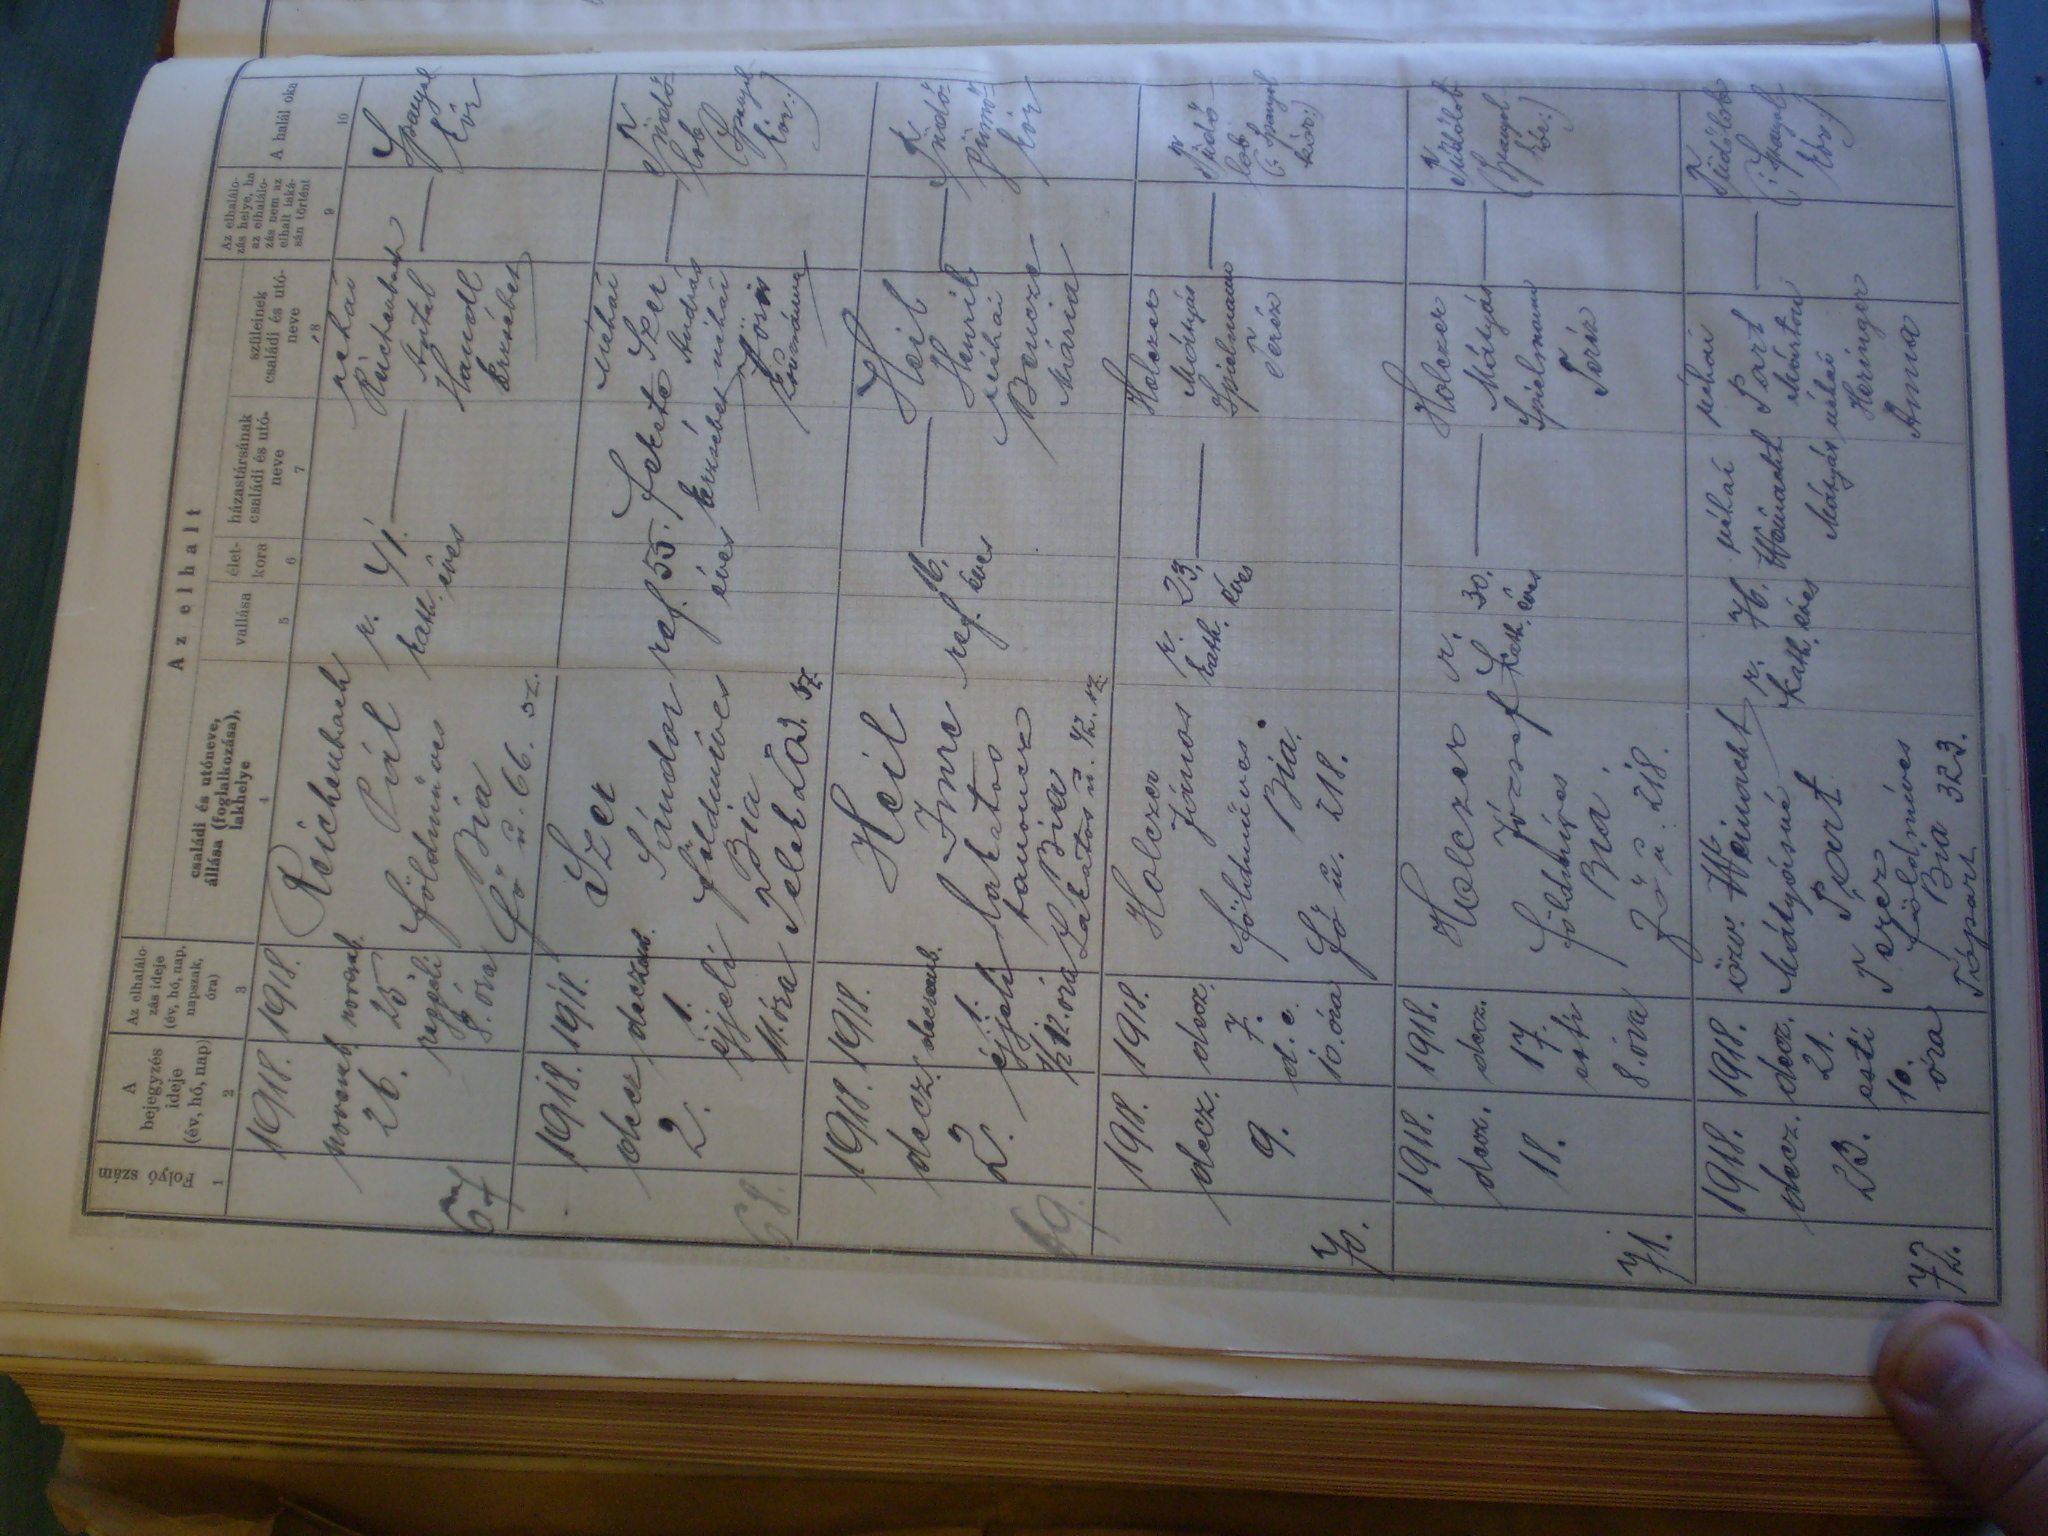 Az elhalt
Folyó
szám
A
bejegyzés
ideje
(év, hó, nap)
Az elhaláló-
zás ideje
(év, hó, nap,
napszak,
óra)
családi és utóneve,
állása (foglalkozása),
lakhelye
vallása
élet-
kora
házastársának
családi és utó-
neve
szüleinek
családi és utó-
neve
Az elhaláló-
zás helye, ha
az elhaláló-
zás nem az
elhalt laká-
sán történt
A halál oka
1
2
3
4
5
6
7
8
9
10
67
1918.
novemb.
26.
1918.
novemb.
25
reggeli
8. óra
Reichenbach
Pál
földmüves
Bia
Fő u. 66. sz.
r.
kath.
41.
éves
néhai
Reichenbach
Antal
Handl
Erzsébet
Spanyol
kór
68.
1918.
decz
2.
1918.
deczemb.
1.
éjjeli
11. óra
Szer
Sándor
földmüves
Bia
Telek
sz.
ref.
55.
éves
Fekete
Erzsébet
néhai
Szer
András
néhai
Zsuzsánna
Tüdő-
lob
(Spanyol
kór.)
69.
1918.
decz.
2.
1918.
decemb.
1.
éjjeli
1/2 12. óra
Heil
Imre
lakatos
tanoncz
Bia
Lakatos u. 42. sz.
ref.
16.
éves
Heil
Henrik
néhai
Bencze
Mária
Tüdő-
gümő-
kór
70.
1918.
decz.
9.
1918.
decz.
7.
d. e.
10. óra
Holczer
János
földmüves
Bia.
Fő u. 218.
r.
kath.
23.
éves
Holczer
Mátyás
Spielmann
Teréz
Tüdő-
lob
(Spanyol
kór.)
71.
1918.
decz.
18.
1918.
decz.
17.
esti
8. óra
Holczer
József
földmüves
Bia.
Fő u. 218.
r.
kath.
30.
éves
Holczer
Mátyás
Spielmann
Teréz
Tüdőlob
(Spanyol
kór.)
72.
1918.
decz.
23.
1918.
decz.
21.
esti
10.
óra
özv. Weinacht
Mátyásné
Part
Teréz
földmüves
Bia
Tópart 323.
r.
kath.
76.
éves
néhai
Weinacht
Mátyás
néhai
Part
Márton
néhai
Heringer
Anna
Tüdőlob
(Spanyol
kór.)